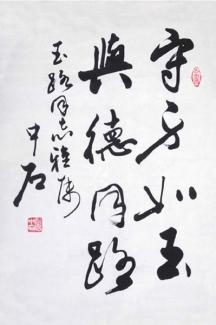 守身如玉
與德同路
玉路同志雅嘱
中石